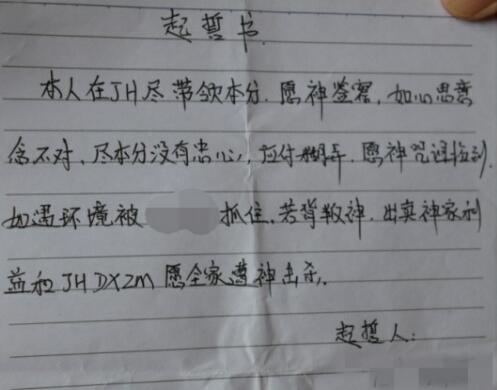 起誓书
本人在JH尽带领本分.愿神鉴察,如心思意
念不对、尽本分没有忠心,应付糊弄.愿神咒诅临到.
如遇环境被 抓住.若背叛神.出卖神家利
益和JHDXZM愿全家遭神击杀.
起誓人: